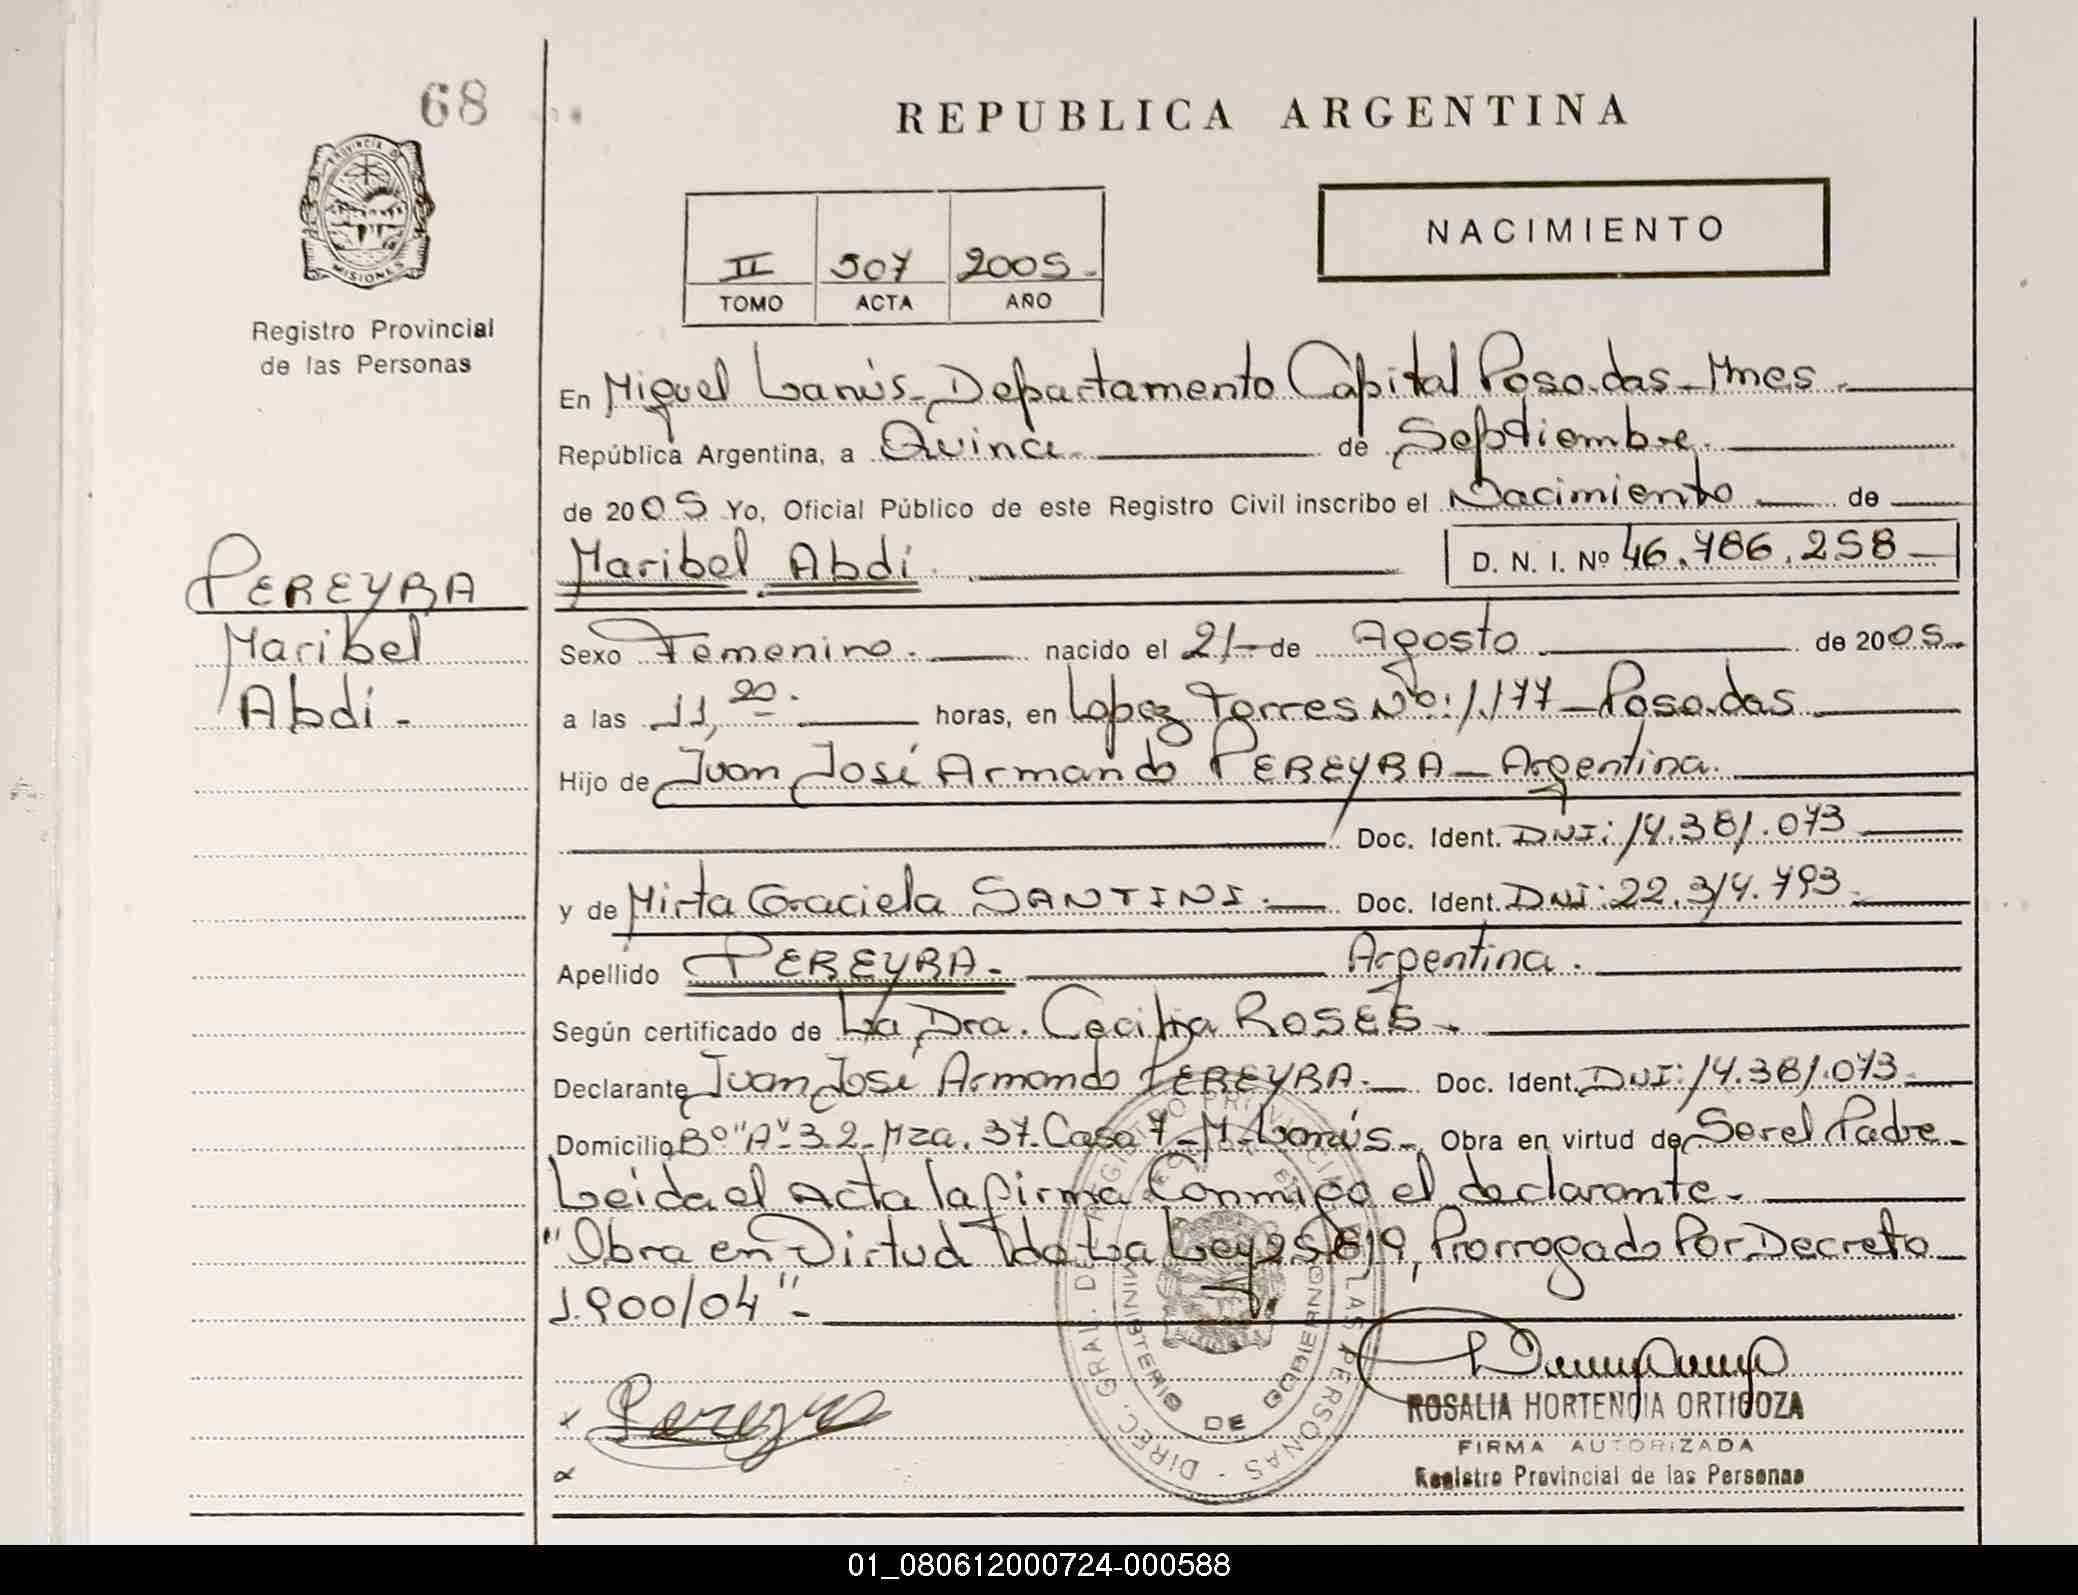 68
REPUBLICA ARGENTINA
PROVINCIA DE
MISIONES
NACIMIENTO
II 507 2005.-
TOMO ACTA AÑO
Registro Provincial
de las Personas
En Miguel Lanús - Departamento Capital Posadas - Mnes.
República Argentina, a Quince. de Septiembre.
de 2005 Yo, Oficial Público de este Registro Civil inscribo el Nacimiento de
PEREYRA
Maribel
Abdi.-
Maribel Abdi. D. N. I. Nº 46.786.258
Sexo Femenino. nacido el 21- de Agosto de 2005.-
a las 11,20. horas, en Lopez Torres Nº: 1.177 - Posadas
Hijo de Juan José Armando PEREYRA - Argentina.
Doc. Ident. DNI: 14.381.073
y de Mirta Graciela SANTINI. Doc. Ident. DNI: 22.314.793.
Apellido PEREYRA.- Argentina.
Según certificado de La Dra. Cecilia ROSES.
Declarante Juan José Armando PEREYRA. Doc. Ident. DNI: 14.381.073
Domicilio Bº "A" 3.2 - Mza. 37. Casa 7 - M. Lanús - Obra en virtud de Ser el Padre
Leida el Acta la firma Conmigo el declarante.-
"Obra en Virtud de La Ley 25.819, Prorrogado Por Decreto
1.900/04"-
Pereyra
DIREC. GRAL. DE REGISTRO PROVINCIAL DE LAS PERSONAS
MINISTERIO DE GOBIERNO
ROSALIA HORTENCIA ORTIGOZA
FIRMA AUTORIZADA
Registro Provincial de las Personas
01_080612000724-000588